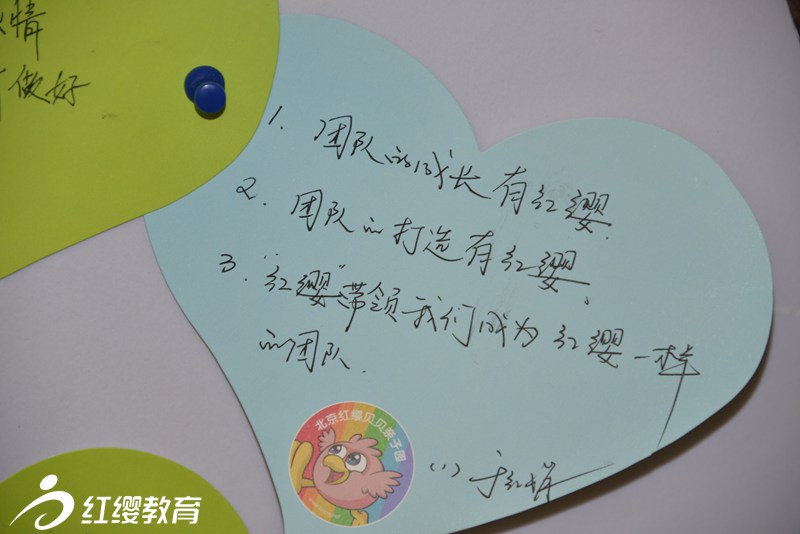 情
做好
1. 团队的成长有红缨.
2. 团队的打造有红缨、
3. “红缨”带领我们成为红缨一样
的团队.
北京红缨贝贝亲子园
(1)
红缨教育